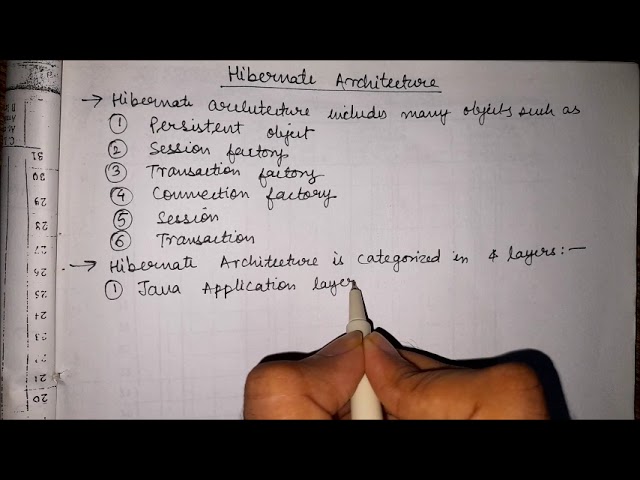 Hibernate Architecture
→ Hibernate architecture includes many objects such as
① Persistent object
② Session factory
③ Transaction factory
④ Connection factory
⑤ Session
⑥ Transaction
→ Hibernate Architecture is categorized in 4 layers:—
① Java Application layer
31
30
29
28
27
26
25
24
23
22
21
20